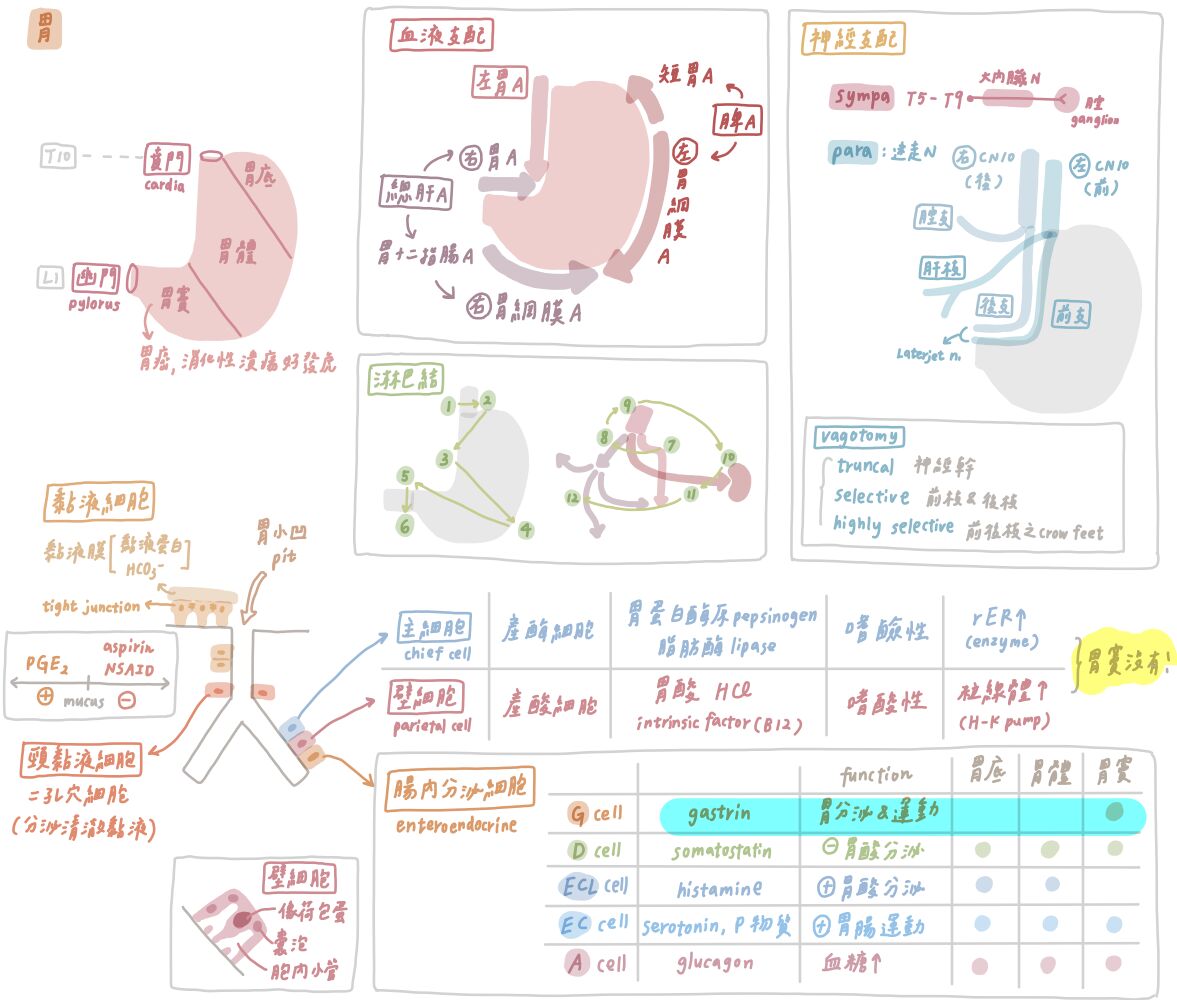 胃
T10
賁門
cardia
胃底
胃體
L1
幽門
pylorus
胃竇
胃癌,消化性潰瘍好發處
血液支配
左胃A
短胃A
脾A
右胃A
總肝A
左胃網膜A
胃十二指腸A
右胃網膜A
神經支配
sympa T5-T9
大內臟N
腔
ganglion
para:迷走N
右CN10
(後)
左CN10
(前)
腔支
肝枝
後支
前支
Laterjet n.
vagotomy
truncal 神經幹
selective 前枝&後枝
highly selective 前後枝之crow feet
淋巴結
1
2
3
4
5
6
7
8
9
10
11
12
黏液細胞
黏液膜[黏液蛋白
HCO3-]
tight junction
胃小凹
pit
PGE2
aspirin
NSAID
⊕ mucus ⊖
頸黏液細胞
=孔穴細胞
(分泌清澈黏液)
主細胞
chief cell
產酶細胞
胃蛋白酶原pepsinogen
脂肪酶lipase
嗜鹼性
rER↑
(enzyme)
壁細胞
parietal cell
產酸細胞
胃酸 HCl
intrinsic factor(B12)
嗜酸性
粒線體↑
(H-K pump)
胃竇沒有!
腸內分泌細胞
enteroendocrine
function 胃底 胃體 胃竇
G cell gastrin 胃分泌&運動
D cell somatostatin ⊖胃酸分泌
ECL cell histamine ⊕胃酸分泌
EC cell serotonin, P物質 ⊕胃腸運動
A cell glucagon 血糖↑
壁細胞
像荷包蛋
囊泡
胞內小管